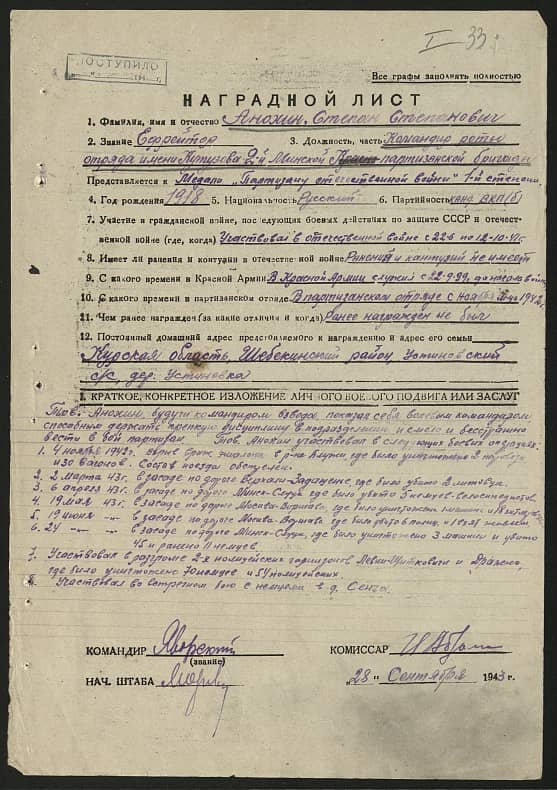 I 33
ПОСТУПИЛО
Все графы заполнять полностью
НАГРАДНОЙ ЛИСТ
1. Фамилия, имя и Отчество Анохин Степан Степанович
2. Звание Ефрейтор 3. Должность, часть Командир роты
отряда имени Кутузова 2-й Минской партизанской бригады
Представляется к Медали „Партизану отечественной войны" 1-й степени
4. Год рождения 1918 5. Национальность Русский 6. Партийность канд. ВКП(б)
7. Участие в гражданской войне, последующих боевых действиях по защите СССР и отечест-
венной войне (где, когда) Участвовал в отечественной войне с 22.6 по 12.10.41г.
8. Имеет ли ранения и контузии в отечественной войне Ранений и контузий не имеет
9. С какого времени в Красной Армии В Красной Армии служил с 22.9.39.
10. С какого времени в партизанском отряде В партизанском отряде с 1942г.
11. Чем ранее награжден (за какие отличия и когда) Ранее награжден не был
12. Постоянный домашний адрес представляемого к награждению и адрес его семьи
Курская область, Шебекинский район, Устиновский
с/с, дер. Устиновка
I. КРАТКОЕ, КОНКРЕТНОЕ ИЗЛОЖЕНИЕ ЛИЧНОГО БОЕВОГО ПОДВИГА ИЛИ ЗАСЛУГ
Тов. Анохин, будучи командиром взвода, показал себя волевым командиром,
способным держать крепкую дисциплину в подразделении и смело и бесстрашно
вести в бой партизан. Тов. Анохин участвовал в следующих боевых операциях:
1. 4 ноября 1942г. эшелона в р-не где было уничтожено
вагонов. Состав поезда обстрелен.
2. 2 марта 43г. в засаде по дороге где было убито
3. 6 апреля 43г. в засаде по дороге Минск-Слуцк где было убито 5 немцев-велосипедистов.
4. 19 мая 43г. в засаде по дороге Москва-Варшава, где было уничтожено
5. 19 июня -"- в засаде по дороге Москва-Варшава, где было убито
6. 24 -"- в засаде по дороге Минск-Слуцк, где было уничтожено 3 машины и убито
45 и ранено 11 немцев.
7. Участвовал в разгроме 2-х полицейских гарнизонов и Дражно,
где было уничтожено и 54 полицейских.
8. Участвовал во встречном бою с немцами в д.
КОМАНДИР Яворский КОМИССАР
(звание)
НАЧ. ШТАБА
28 Сентября 1943 г.